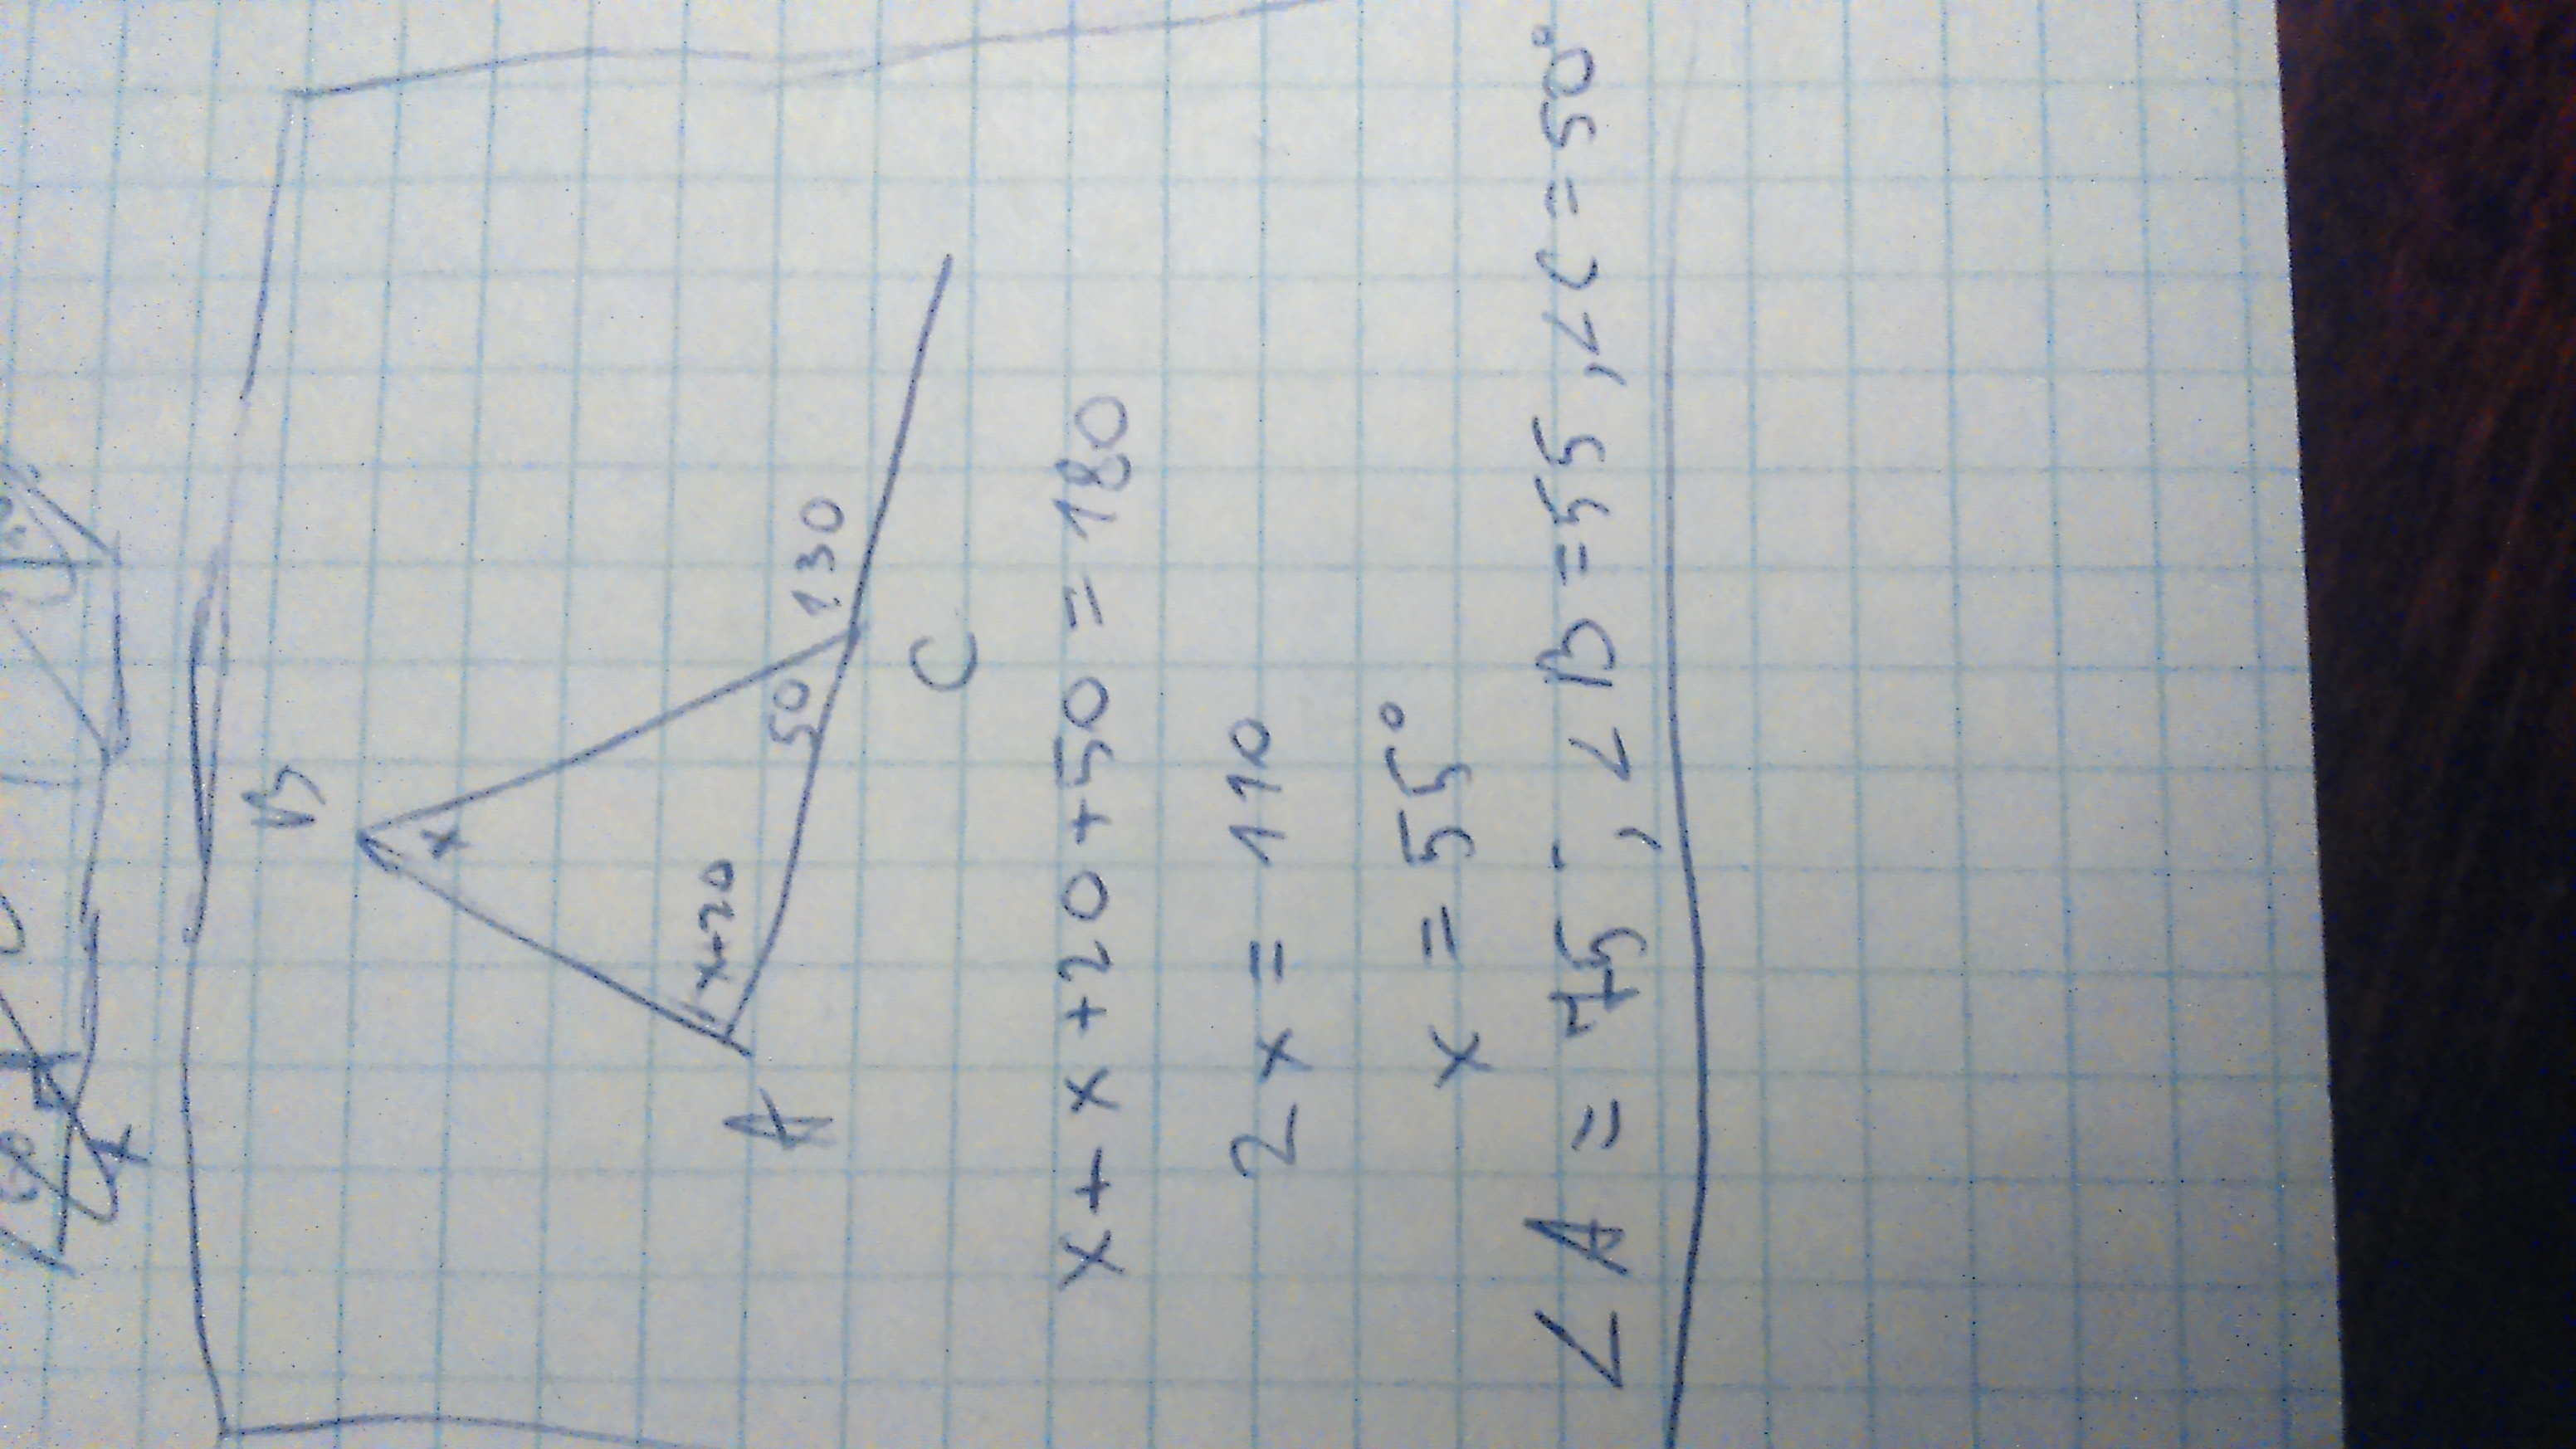 B
x
x+20
50 130
A
C
x+x+20+50=180
2x=110
x=55°
∠A=75°, ∠B=55, ∠C=50°